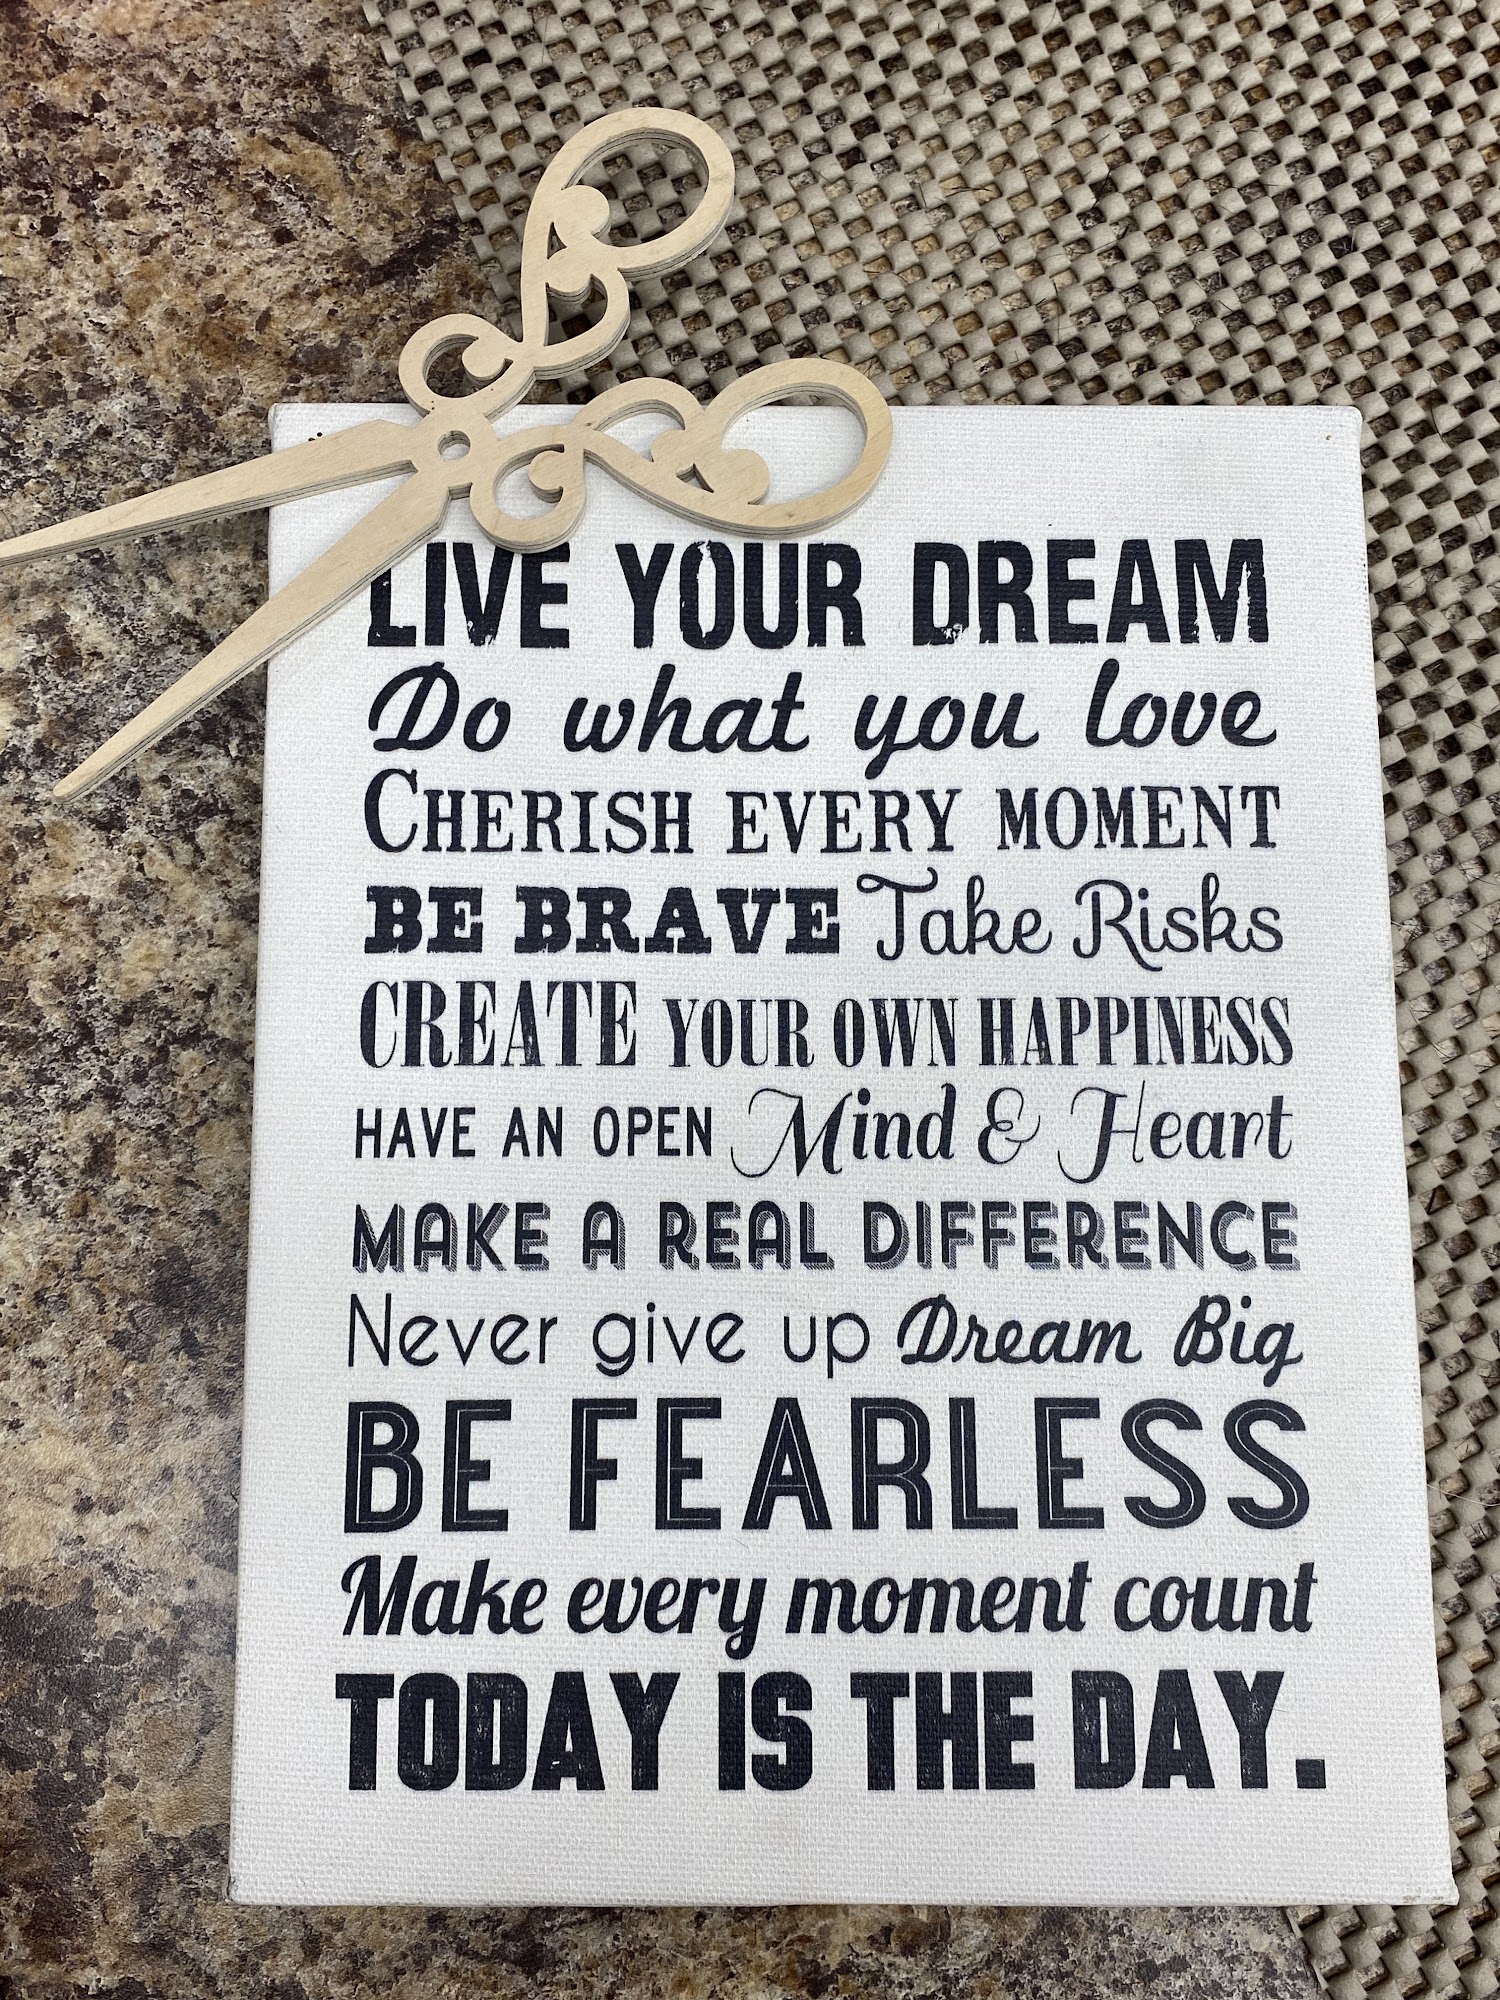 LIVE YOUR DREAM
Do what you love
CHERISH EVERY MOMENT
BE BRAVE Take Risks
CREATE YOUR OWN HAPPINESS
HAVE AN OPEN Mind & Heart
MAKE A REAL DIFFERENCE
Never give up Dream Big
BE FEARLESS
Make every moment count
TODAY IS THE DAY.